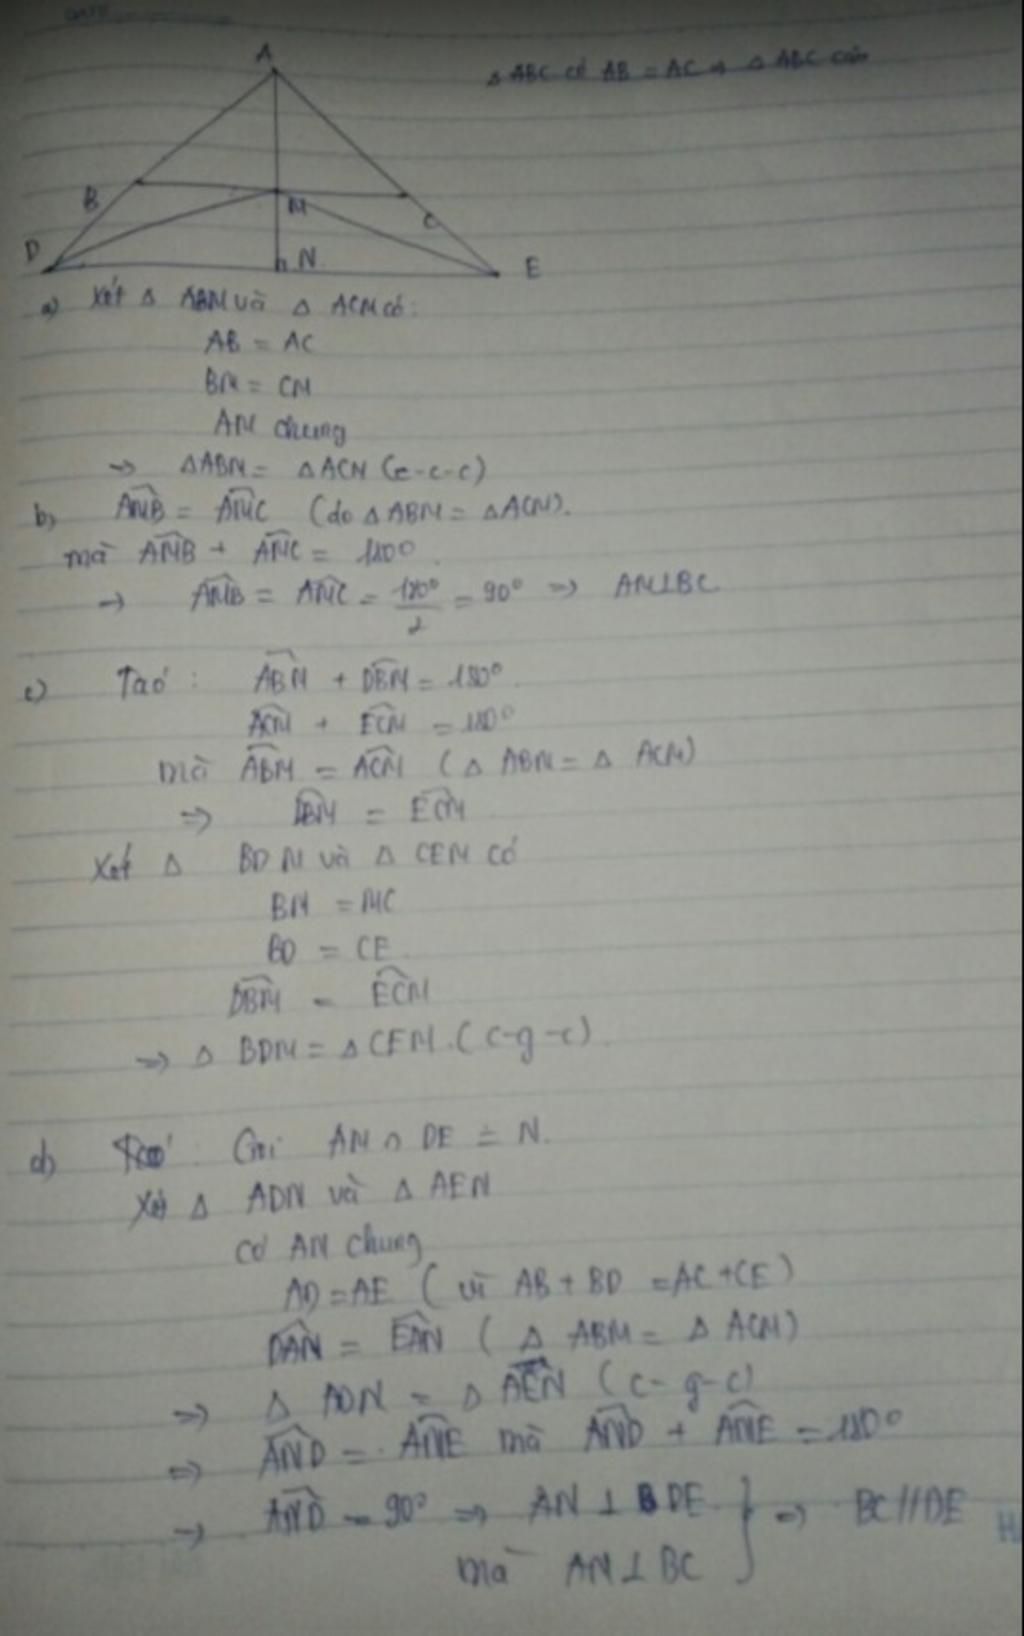 A
△ ABC có AB = AC → △ ABC cân
B
M
C
D
N
E
a) Xét △ ABM và △ ACM có:
AB = AC
BM = CM
AM chung
→ △ABM = △ACM (c-c-c)
b) AMB = AMC (do △ABM = △ACM).
mà AMB + AMC = 180°.
→ AMB = AMC = 180°/2 = 90° => AM⊥BC
c) Ta có : ABM + DBM = 180°.
ACM + ECM = 180°
mà ABM = ACM (△ ABM = △ ACM)
=> DBM = ECM
Xét △ BDM và △ CEM có
BM = MC
BD = CE.
DBM = ECM
=> △ BDM = △CEM.(c-g-c).
d) Gọi AM ∩ DE = N.
Xét △ ADN và △ AEN
có AN chung
AD = AE (vì AB + BD = AC + CE)
DAN = EAN (△ ABM = △ ACM)
=> △ ADN = △ AEN (c-g-c)
=> AND = ANE mà AND + ANE = 180°
→ AND = 90° => AN ⊥ DE } => BC // DE
mà AN ⊥ BC